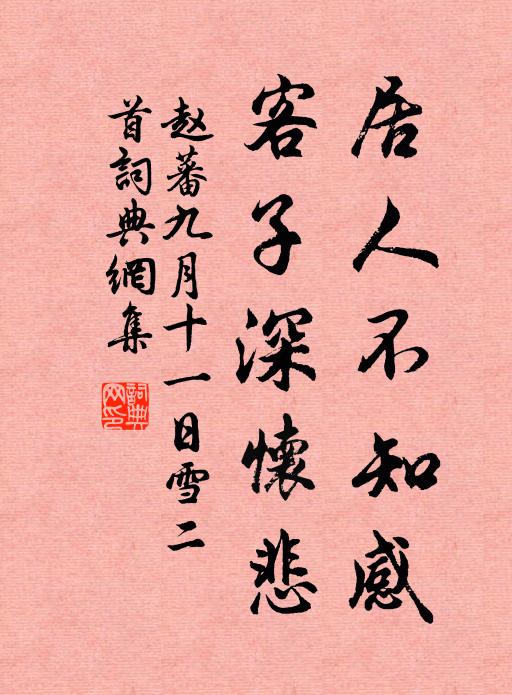 居人不知感
客子深懷悲
赵蕃九月十一日雪二
首詞典網集
詞典
网印